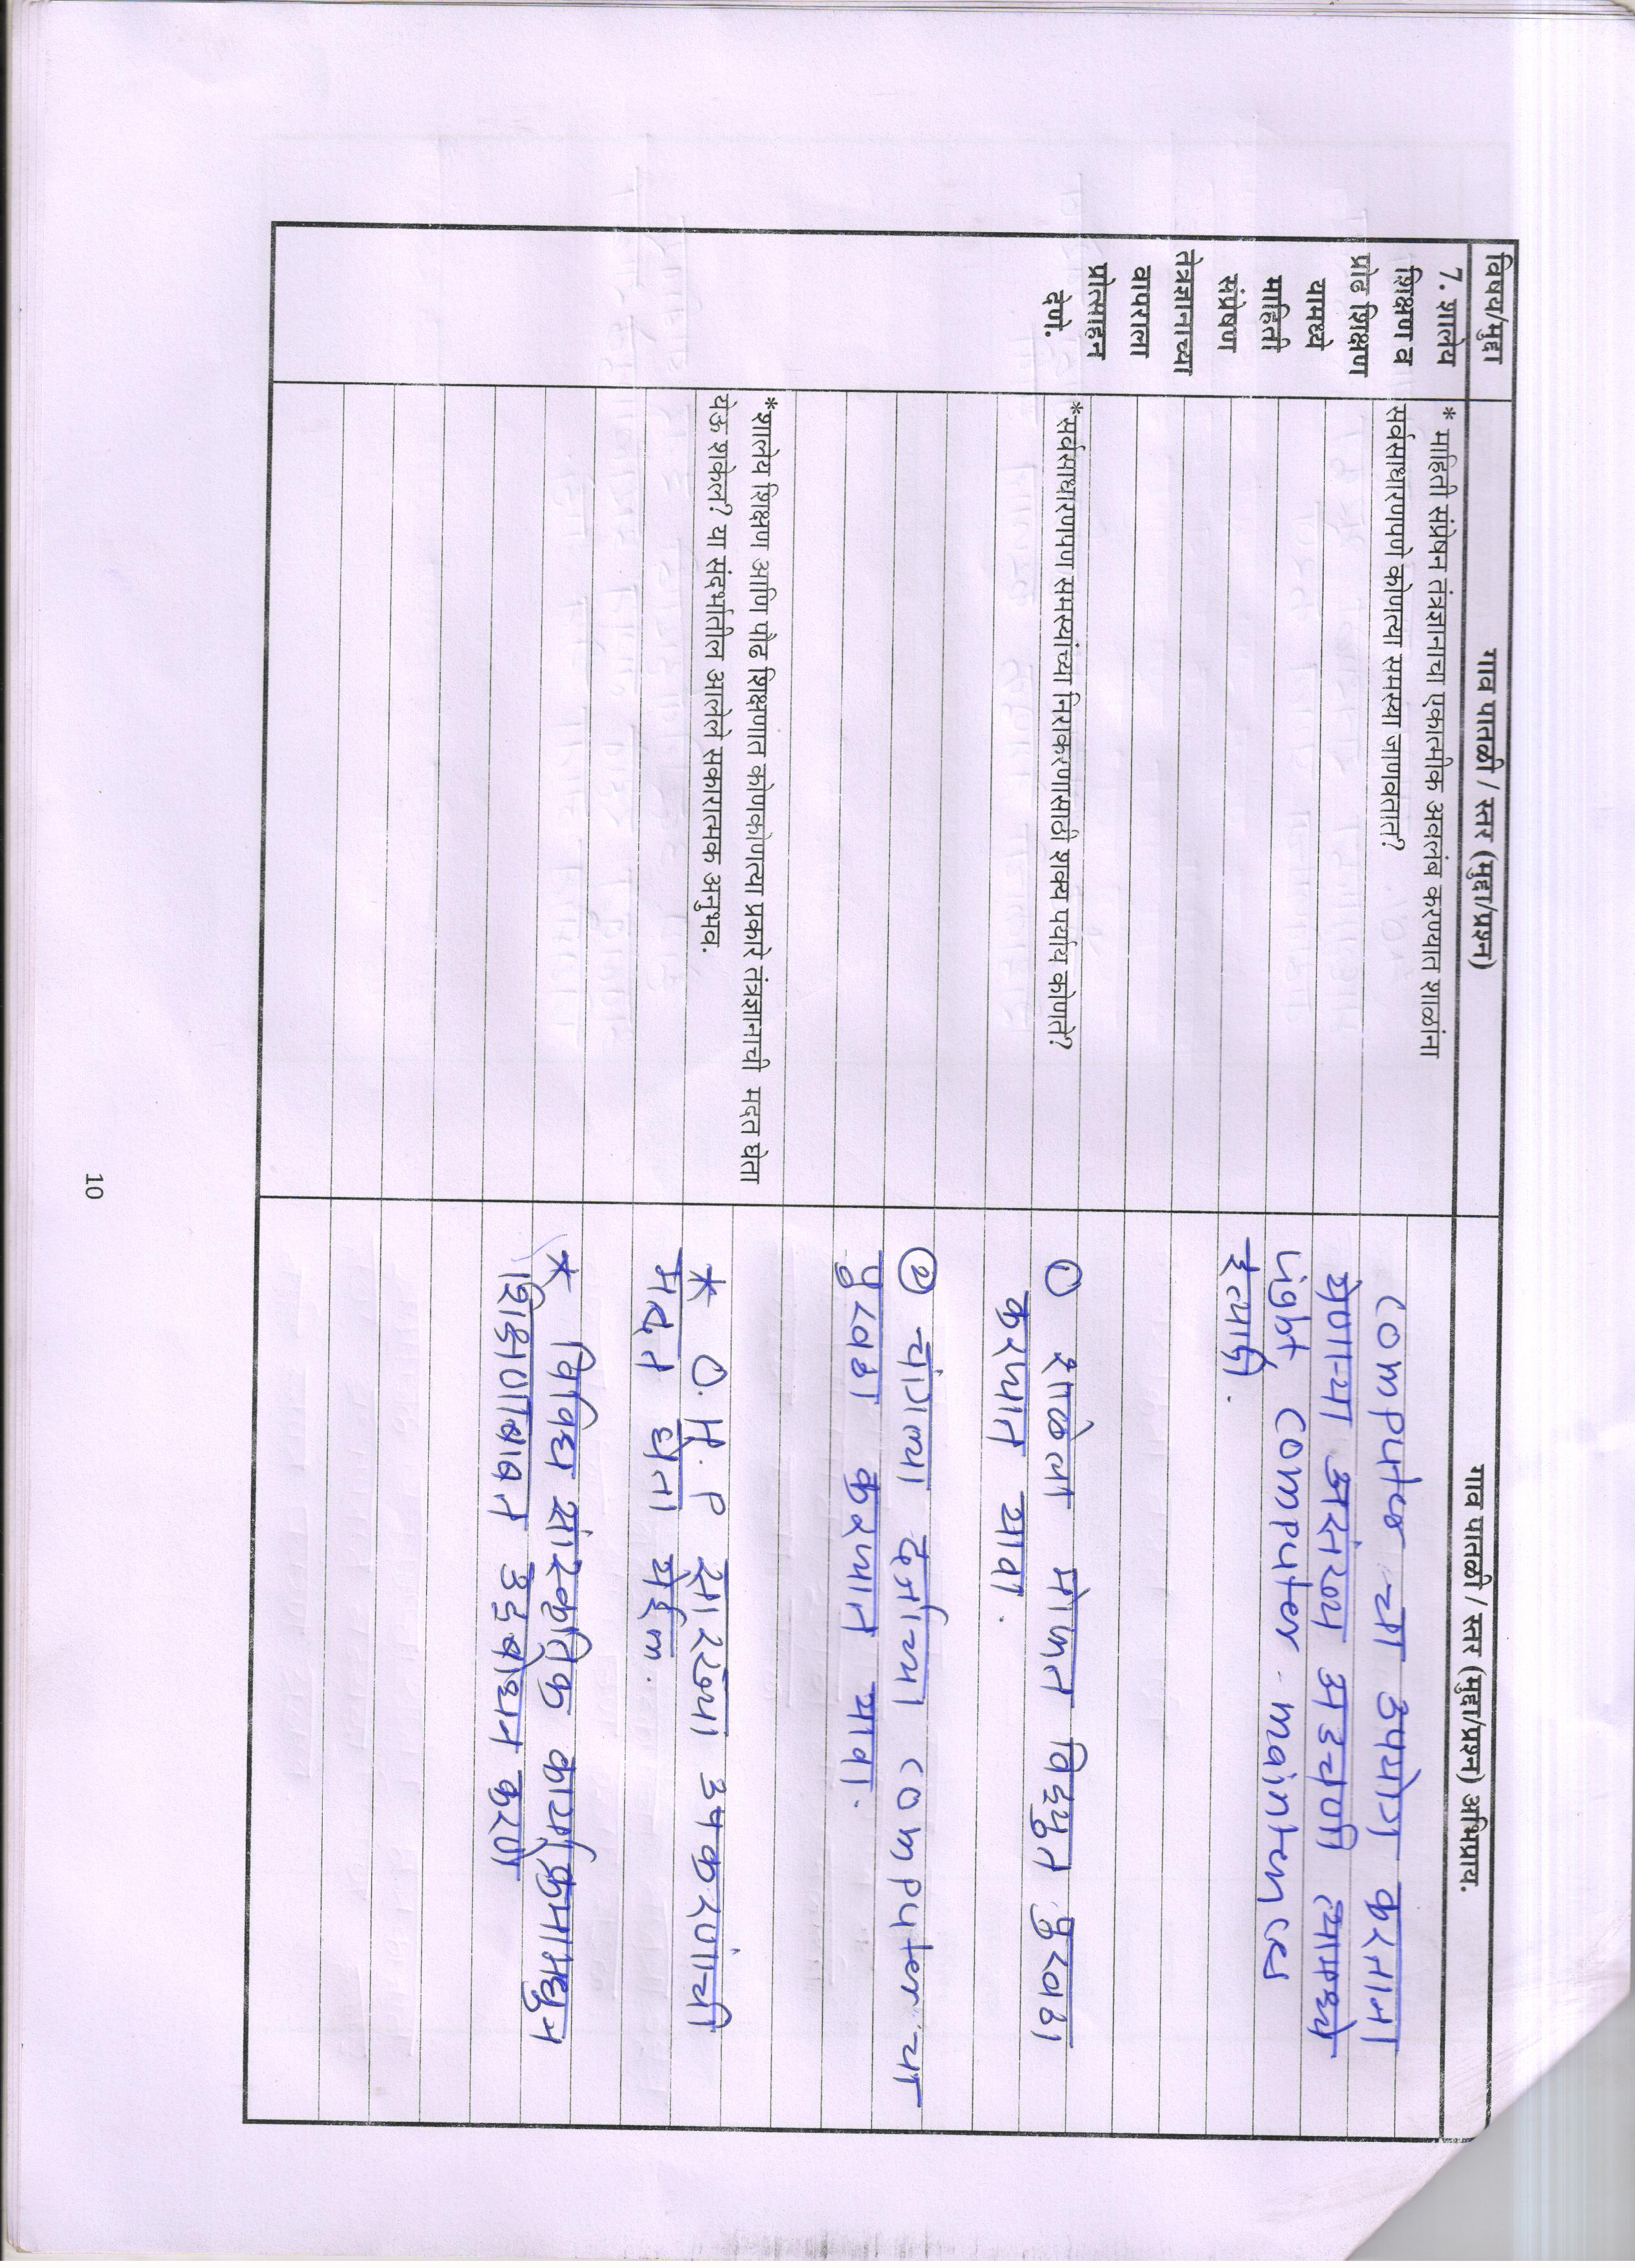 विषय/मुद्दा
गाव पातळी / स्तर (मुद्दा/प्रश्न)
गाव पातळी / स्तर (मुद्दा/प्रश्न) अभिप्राय.
7. शालेय
शिक्षण व
प्रोढ शिक्षण
यामध्ये
माहिती
संप्रेषण
तंत्रज्ञानाच्या
वापराला
प्रोत्साहन
देणे.
* माहिती संप्रेषन तंत्रज्ञानाचा एकात्मीक अवलंब करण्यात शाळांना
सर्वसाधारणपणे कोणत्या समस्या जाणवतात?
*सर्वसाधारणपण समस्यांच्या निराकरणासाठी शक्य पर्याय कोणते?
*शालेय शिक्षण आणि पोढ शिक्षणात कोणकोणत्या प्रकारे तंत्रज्ञानाची मदत घेता
येऊ शकेल? या संदर्भातील आलेले सकारात्मक अनुभव.
Computer चा उपयोग करताना
येणाऱ्या असंख्य अडचणी त्यामध्ये
Light, Computer - maintences
इत्यादी.
① शाळेला मोफत विद्युत पुरवठा
करण्यात यावा.
② चांगल्या दर्जाच्या Computer चा
पुरवठा करण्यात यावा.
* O.H.P सारख्या उपकरणांची
मदत घेता येईल.
* विविध सांस्कृतिक कार्यक्रमामधुन
शिक्षणाबाबत उद्बोधन करणे
10